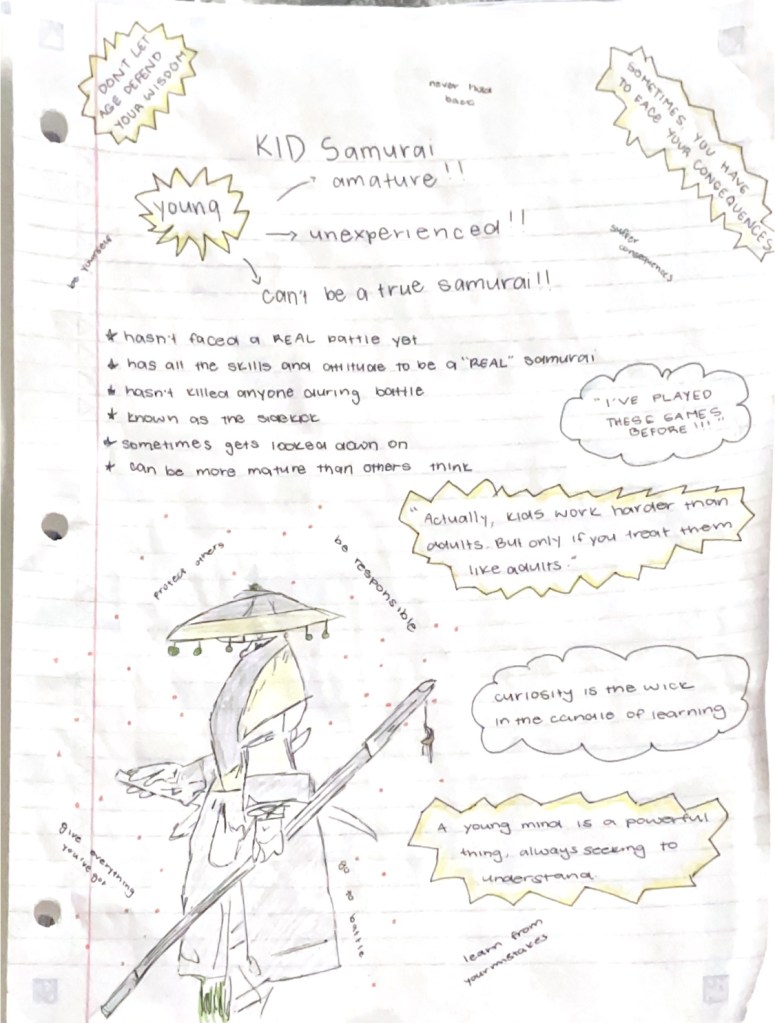 DON'T LET
AGE DEFEND
YOUR WISDOM
never hold
back
SOMETIMES YOU HAVE
TO FACE YOUR CONCEQUENCES
KID Samurai
amature!!
young
unexperienced!!
can't be a true samurai!!
be yourself
suffer
consequences
★ hasn't faced a REAL battle yet
★ has all the skills and attitude to be a "REAL" samurai
★ hasn't killed anyone during battle
★ known as the sidekick
★ sometimes gets looked down on
★ can be more mature than others think
"I'VE PLAYED
THESE GAMES
BEFORE!!!"
"Actually, kids work harder than
adults. But only if you treat them
like adults."
protect others
be responsible
curiosity is the wick
in the candle of learning
A young mind is a powerful
thing, always seeking to
understand.
give everything
you've got
go to battle
learn from
your mistakes